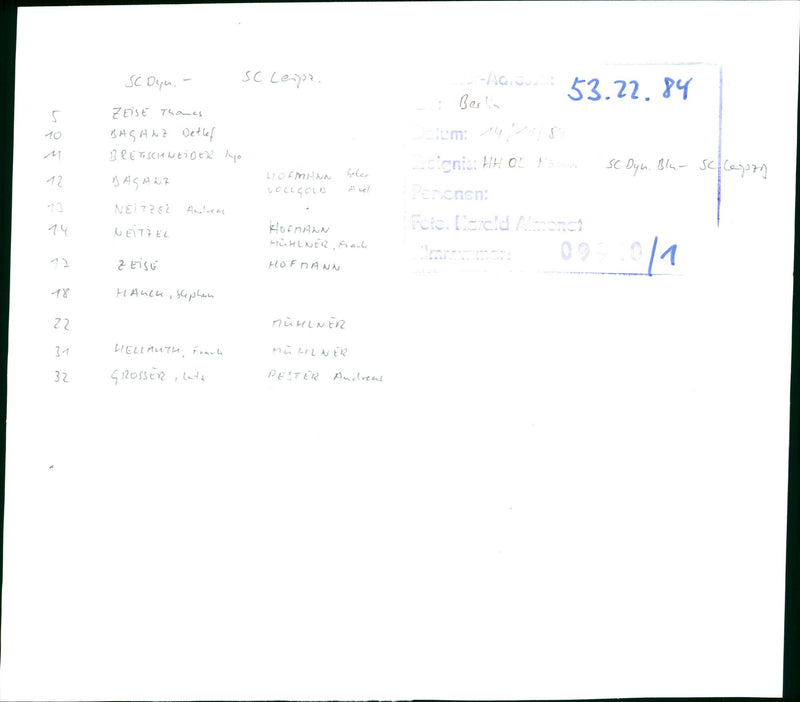 SC Dyn. - SC Leipz.
5 ZEISE Thomas
10 BAGANZ Detlef
11 BRETSCHNEIDER Ingo
12 BAGANZ HOFMANN
VOLLGOLD Axel
13 NEITZEL Andreas
14 NEITZEL HOFMANN
MÜHLNER, Frank
17 ZEISE HOFMANN
18 HAUCK, Stephan
22 MÜHLNER
31 HELLMUTH, Frank MÜHLNER
32 GROSSER, Lutz PESTER Andreas
-Adresse: 53.22.84
Berlin
Datum: 14/
Ereignis: HH OL SC Dyn. Bln - SC Leipzig
Personen:
Foto: Harald Almonat
Filmnummer: /1